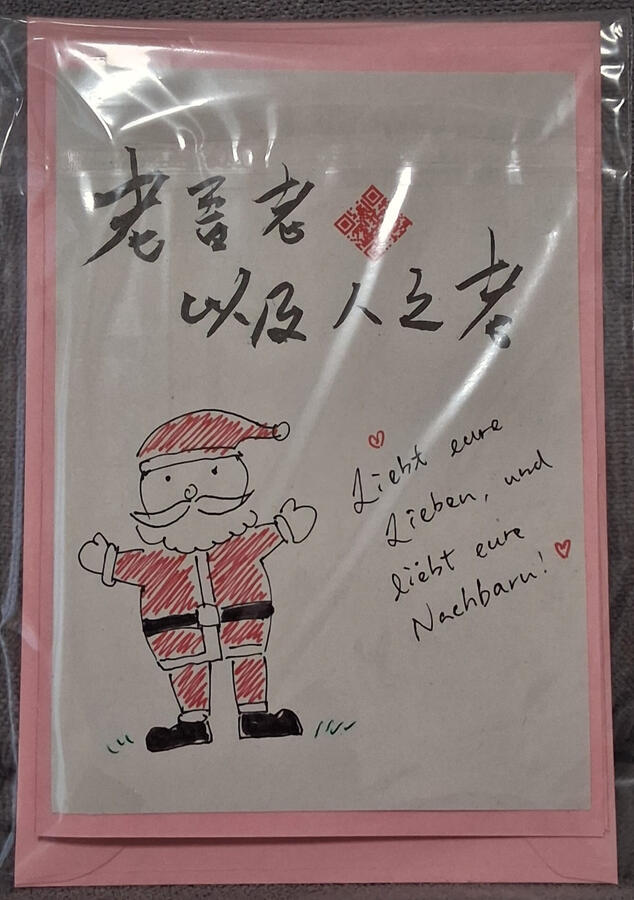 老吾老
以及人之老
Liebt eure
Lieben, und
liebt eure
Nachbarn!